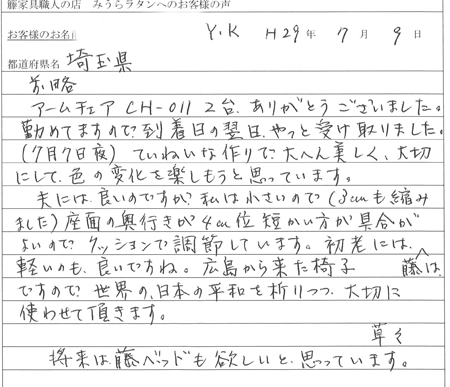 籐家具職人の店 みうらラタンへのお客様の声
お客様のお名前 Y.K H29年 7月 9日
都道府県名 埼玉県
前略
アームチェア CH-011 2台、ありがとうございました。
勤めてますので到着日の翌日、やっと受け取りました。
(7月7日夜) ていねいな作りで、大へん美しく、大切
にして、色の変化を楽しもうと思っています。
夫には、良いのですが、私は小さいので(3cmも縮み
ました)座面の奥行きが4cm位短かい方が具合が
よいので、クッションで調節しています。初老には、
軽いのも、良いですね。広島から来た椅子 藤は、
ですので、世界の、日本の平和を祈りつつ、大切に
使わせて頂きます。
草々
将来は、藤ベッドも欲しいと、思っています。